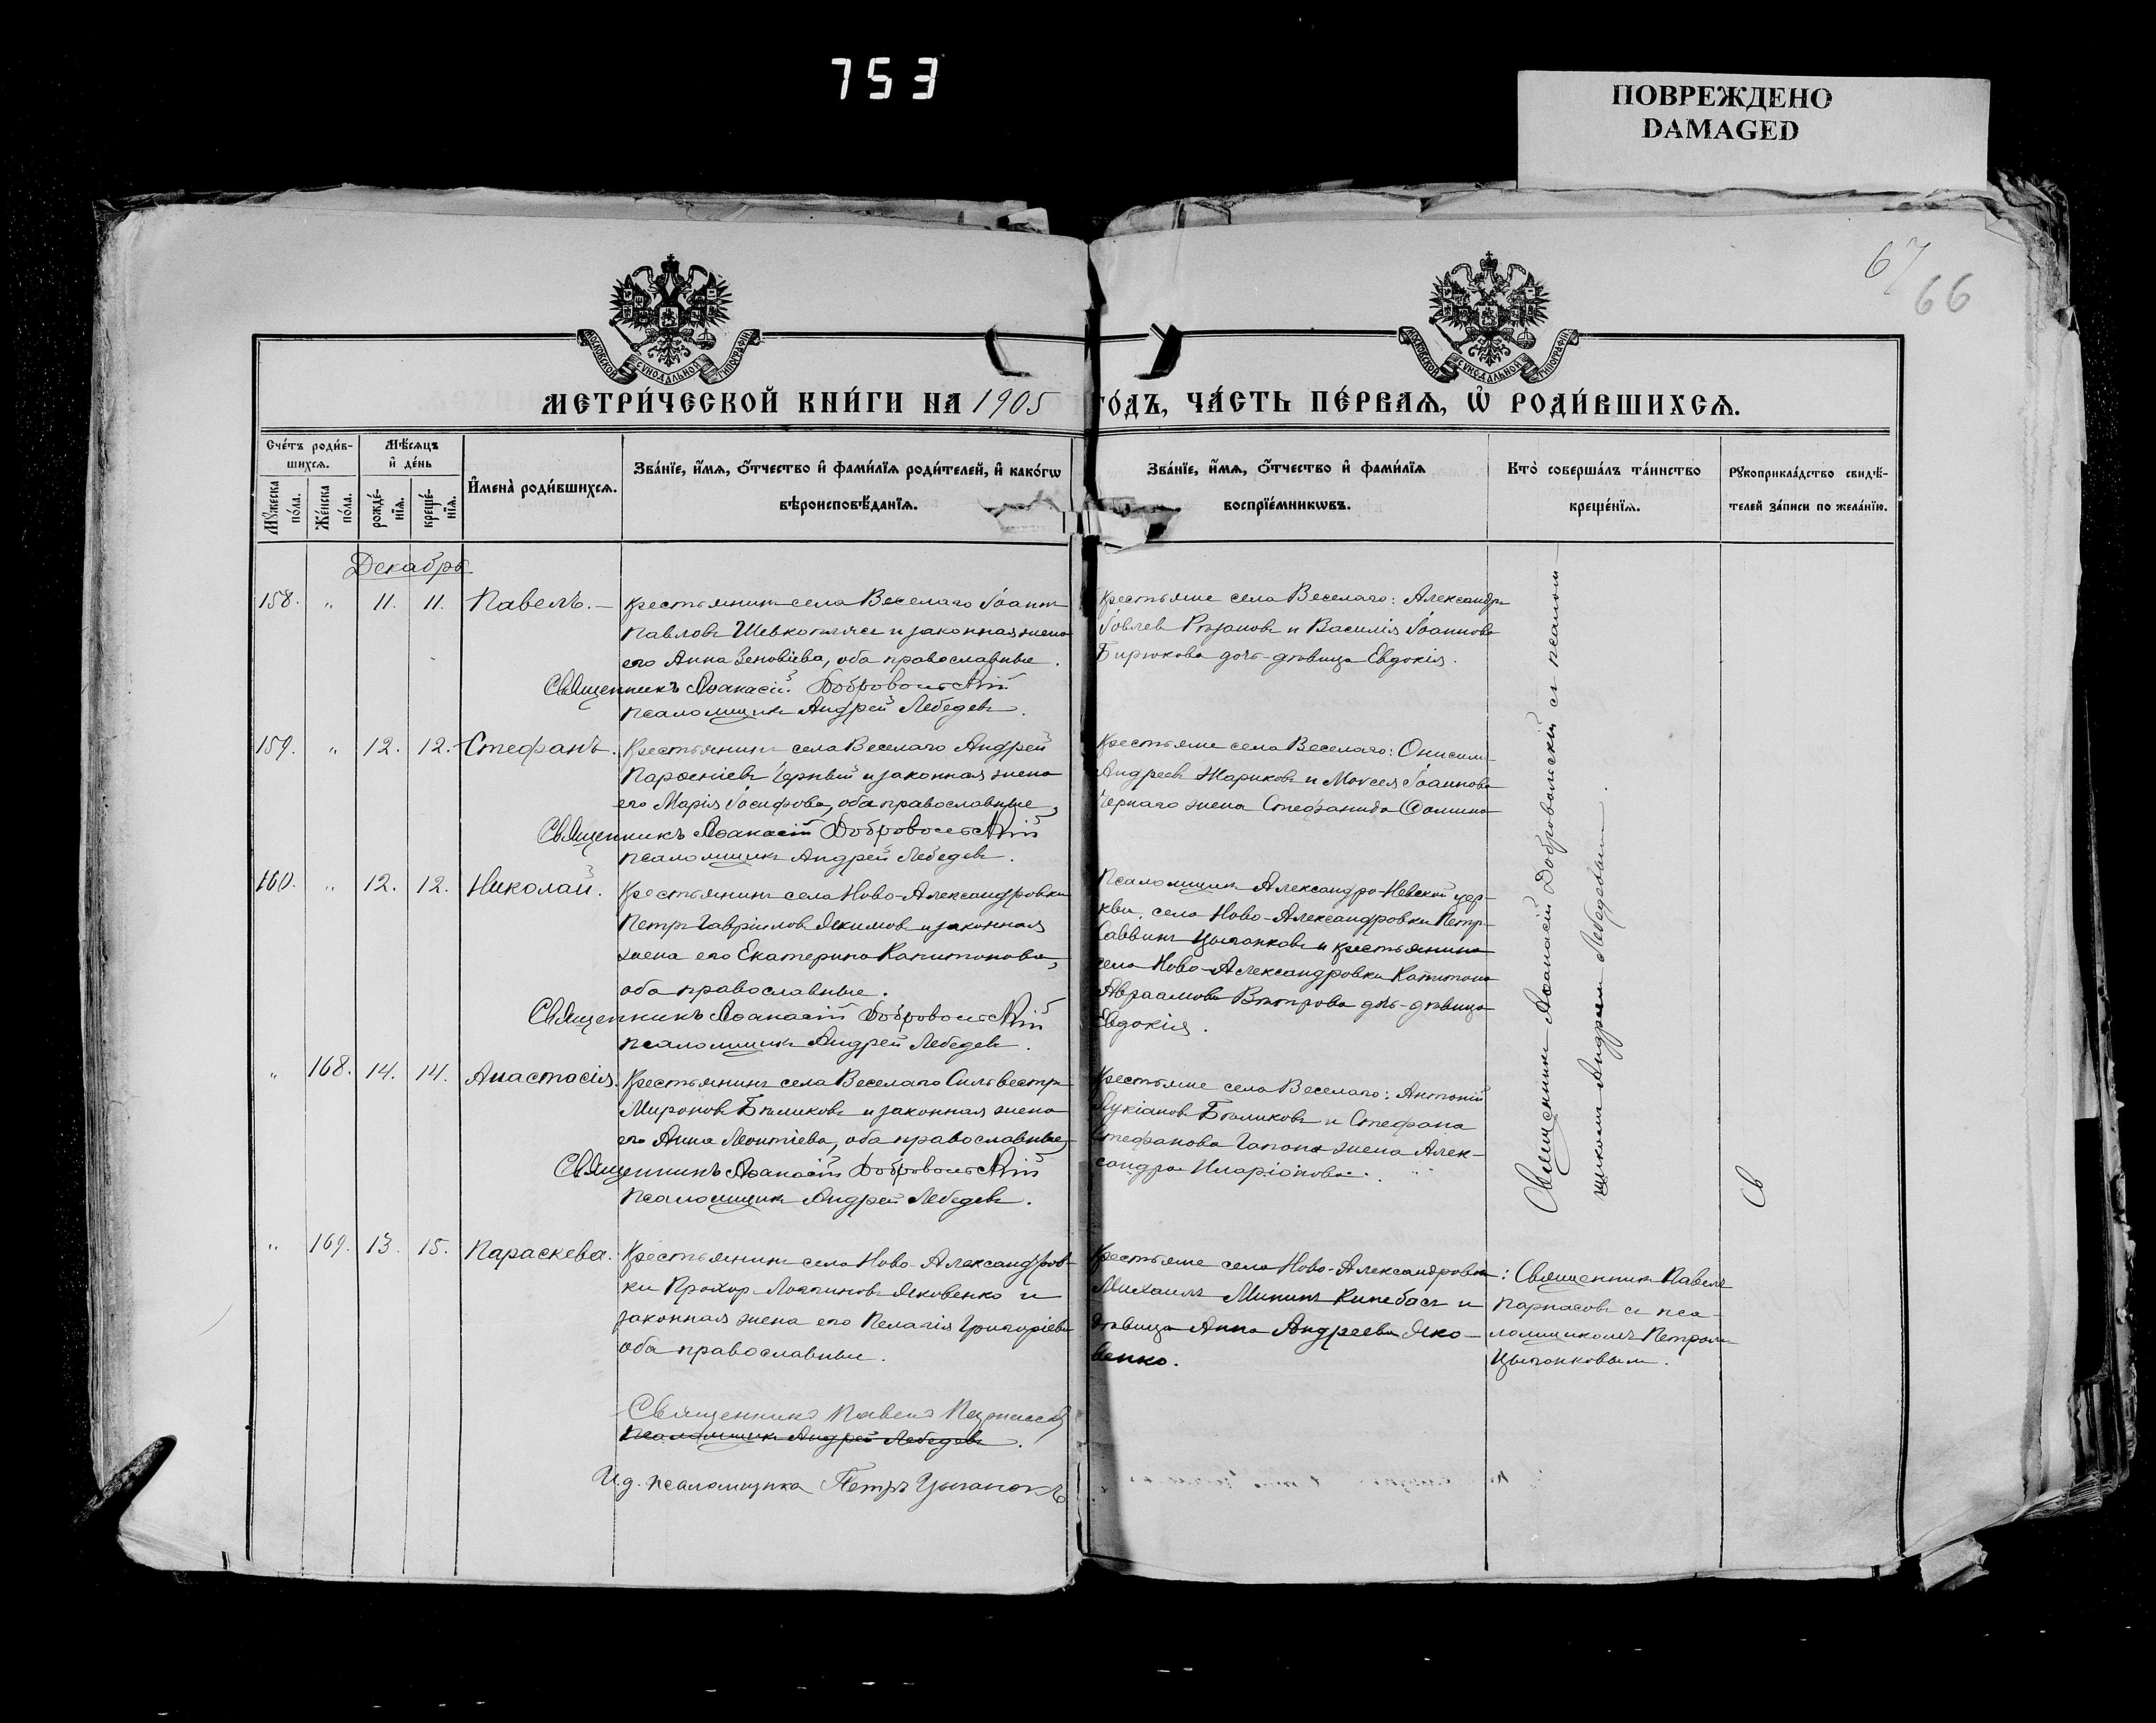 753
ПОВРЕЖДЕНО
DAMAGED
67
66
МОСКОВСКОЙ СУНОДАЛЬНОЙ ТИПОГРАФІИ
МОСКОВСКОЙ СУНОДАЛЬНОЙ ТИПОГРАФІИ
МЕТРИ́ЧЕСКОЙ КНИ́ГИ НА 1905 ГО́ДЪ, ЧА́СТЬ ПЕ́РВАѦ, Ѡ҆ РОДИ́ВШИХСѦ.
Сче́тъ роди́в-
шихсѧ.
Мѣ́сѧцъ
и҆ де́нь
Мꙋ́жеска по́ла.
Же́нска по́ла.
рожде́-
нїѧ.
креще́-
нїѧ.
И҆мена̀ роди́вшихсѧ.
Зва́нїе, и҆́мѧ, ѻ҆́тчество и҆ фами́лїѧ роди́телей, и҆ како́гѡ
вѣроисповѣ́данїѧ.
Зва́нїе, и҆́мѧ, ѻ҆́тчество и҆ фами́лїѧ
воспрїе́мникѡвъ.
Кто̀ соверша́лъ та́инство
креще́нїѧ.
Рꙋкоприкла́дство свидѣ́-
телей за́писи по жела́нїю.
Декабрь
158. " 11. 11. Павелъ. –
Крестьянинъ села Веселаго Іоаннъ
Павловъ Шевкоплясъ и законная жена
его Анна Зеновіева, оба православные.
Священникъ Аѳанасій Добровольскій
Псаломщикъ Андрей Лебедевъ.
Крестьяне села Веселаго: Александръ
Іовлевъ Рязановъ и Василія Іоаннова
Бирюкова дочь-дѣвица Евдокія.
159. " 12. 12. Стефанъ.
Крестьянинъ села Веселаго Андрей
Парѳеніевъ Черный и законная жена
его Марія Іосифова, оба православные,
Священникъ Аѳанасій Добровольскій
Псаломщикъ Андрей Лебедевъ.
Крестьяне села Веселаго: Онисимъ
Андреевъ Жариковъ и Моѵсея Іоаннова
Чернаго жена Стефанида Ѳомина
160. " 12. 12. Николай.
Крестьянинъ села Ново-Александровки
Петръ Гавріиловъ Якимовъ и законная
жена его Екатерина Капитонова,
оба православные.
Священникъ Аѳанасій Добровольскій
Псаломщикъ Андрей Лебедевъ.
Псаломщикъ Александро-Невской цер-
кви, села Ново-Александровки Петръ
Саввинъ Цыганковъ и крестьянина
села Ново-Александровки Капитона
Авраамова Вѣтрова дочь-дѣвица
Евдокія.
" 168. 14. 14. Анастасія.
Крестьянинъ села Веселаго Сильвестръ
Мироновъ Бѣликовъ и законная жена
его Анна Леонтіева, оба православные,
Священникъ Аѳанасій Добровольскій
Псаломщикъ Андрей Лебедевъ.
Крестьяне села Веселаго: Антоній
Лукіановъ Бѣликовъ и Стефана
Стефанова Гапона жена Алек-
сандра Иларіонова.
Священникъ Аѳанасій Добровольскій съ псалом
щикомъ Андреемъ Лебедевымъ.
Св
" 169. 13. 15. Параскева.
Крестьянинъ села Ново-Александров-
ки Прохоръ Логгиновъ Яковенко и
законная жена его Пелагія Григоріева
оба православные.
Священникъ Павелъ Парнасовъ
Псаломщикъ Андрей Лебедевъ.
И.д. псаломщика Петръ Цыганокъ
Крестьяне села Ново-Александровки:
Михаилъ Мининъ Кинебасъ и
дѣвица Анна Андреева Яко-
венко.
Священникъ Павелъ
Парнасовъ съ пса-
ломщикомъ Петромъ
Цыганковымъ.